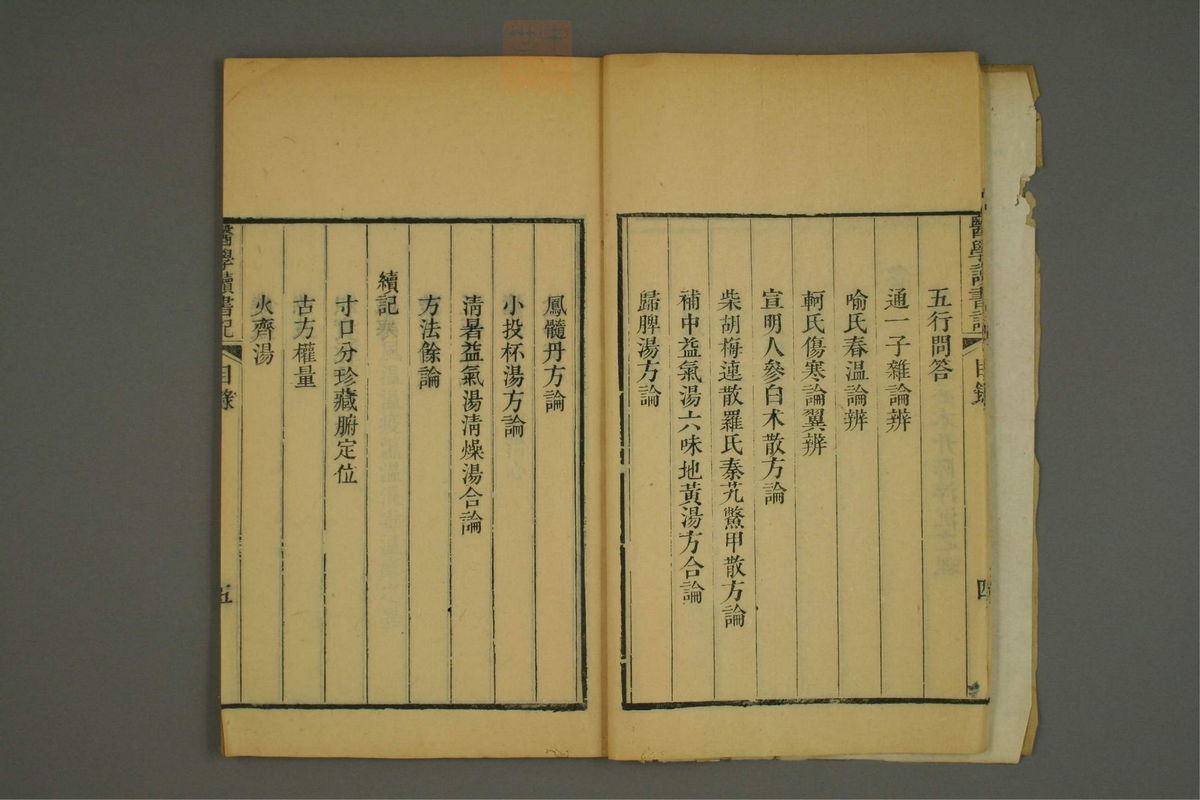 醫學讀書記
目錄
四
五行問答
通一子雜論辨
喻氏春温論辨
軻氏傷寒論翼辨
宣明人參白术散方論
柴胡梅連散羅氏秦艽鱉甲散方論
補中益氣湯六味地黃湯方合論
歸脾湯方論
鳳髓丹方論
小投杯湯方論
清暑益氣湯清燥湯合論
方法餘論
續記
寸口分珍藏腑定位
古方權量
火齊湯
醫學讀書記
目錄
五